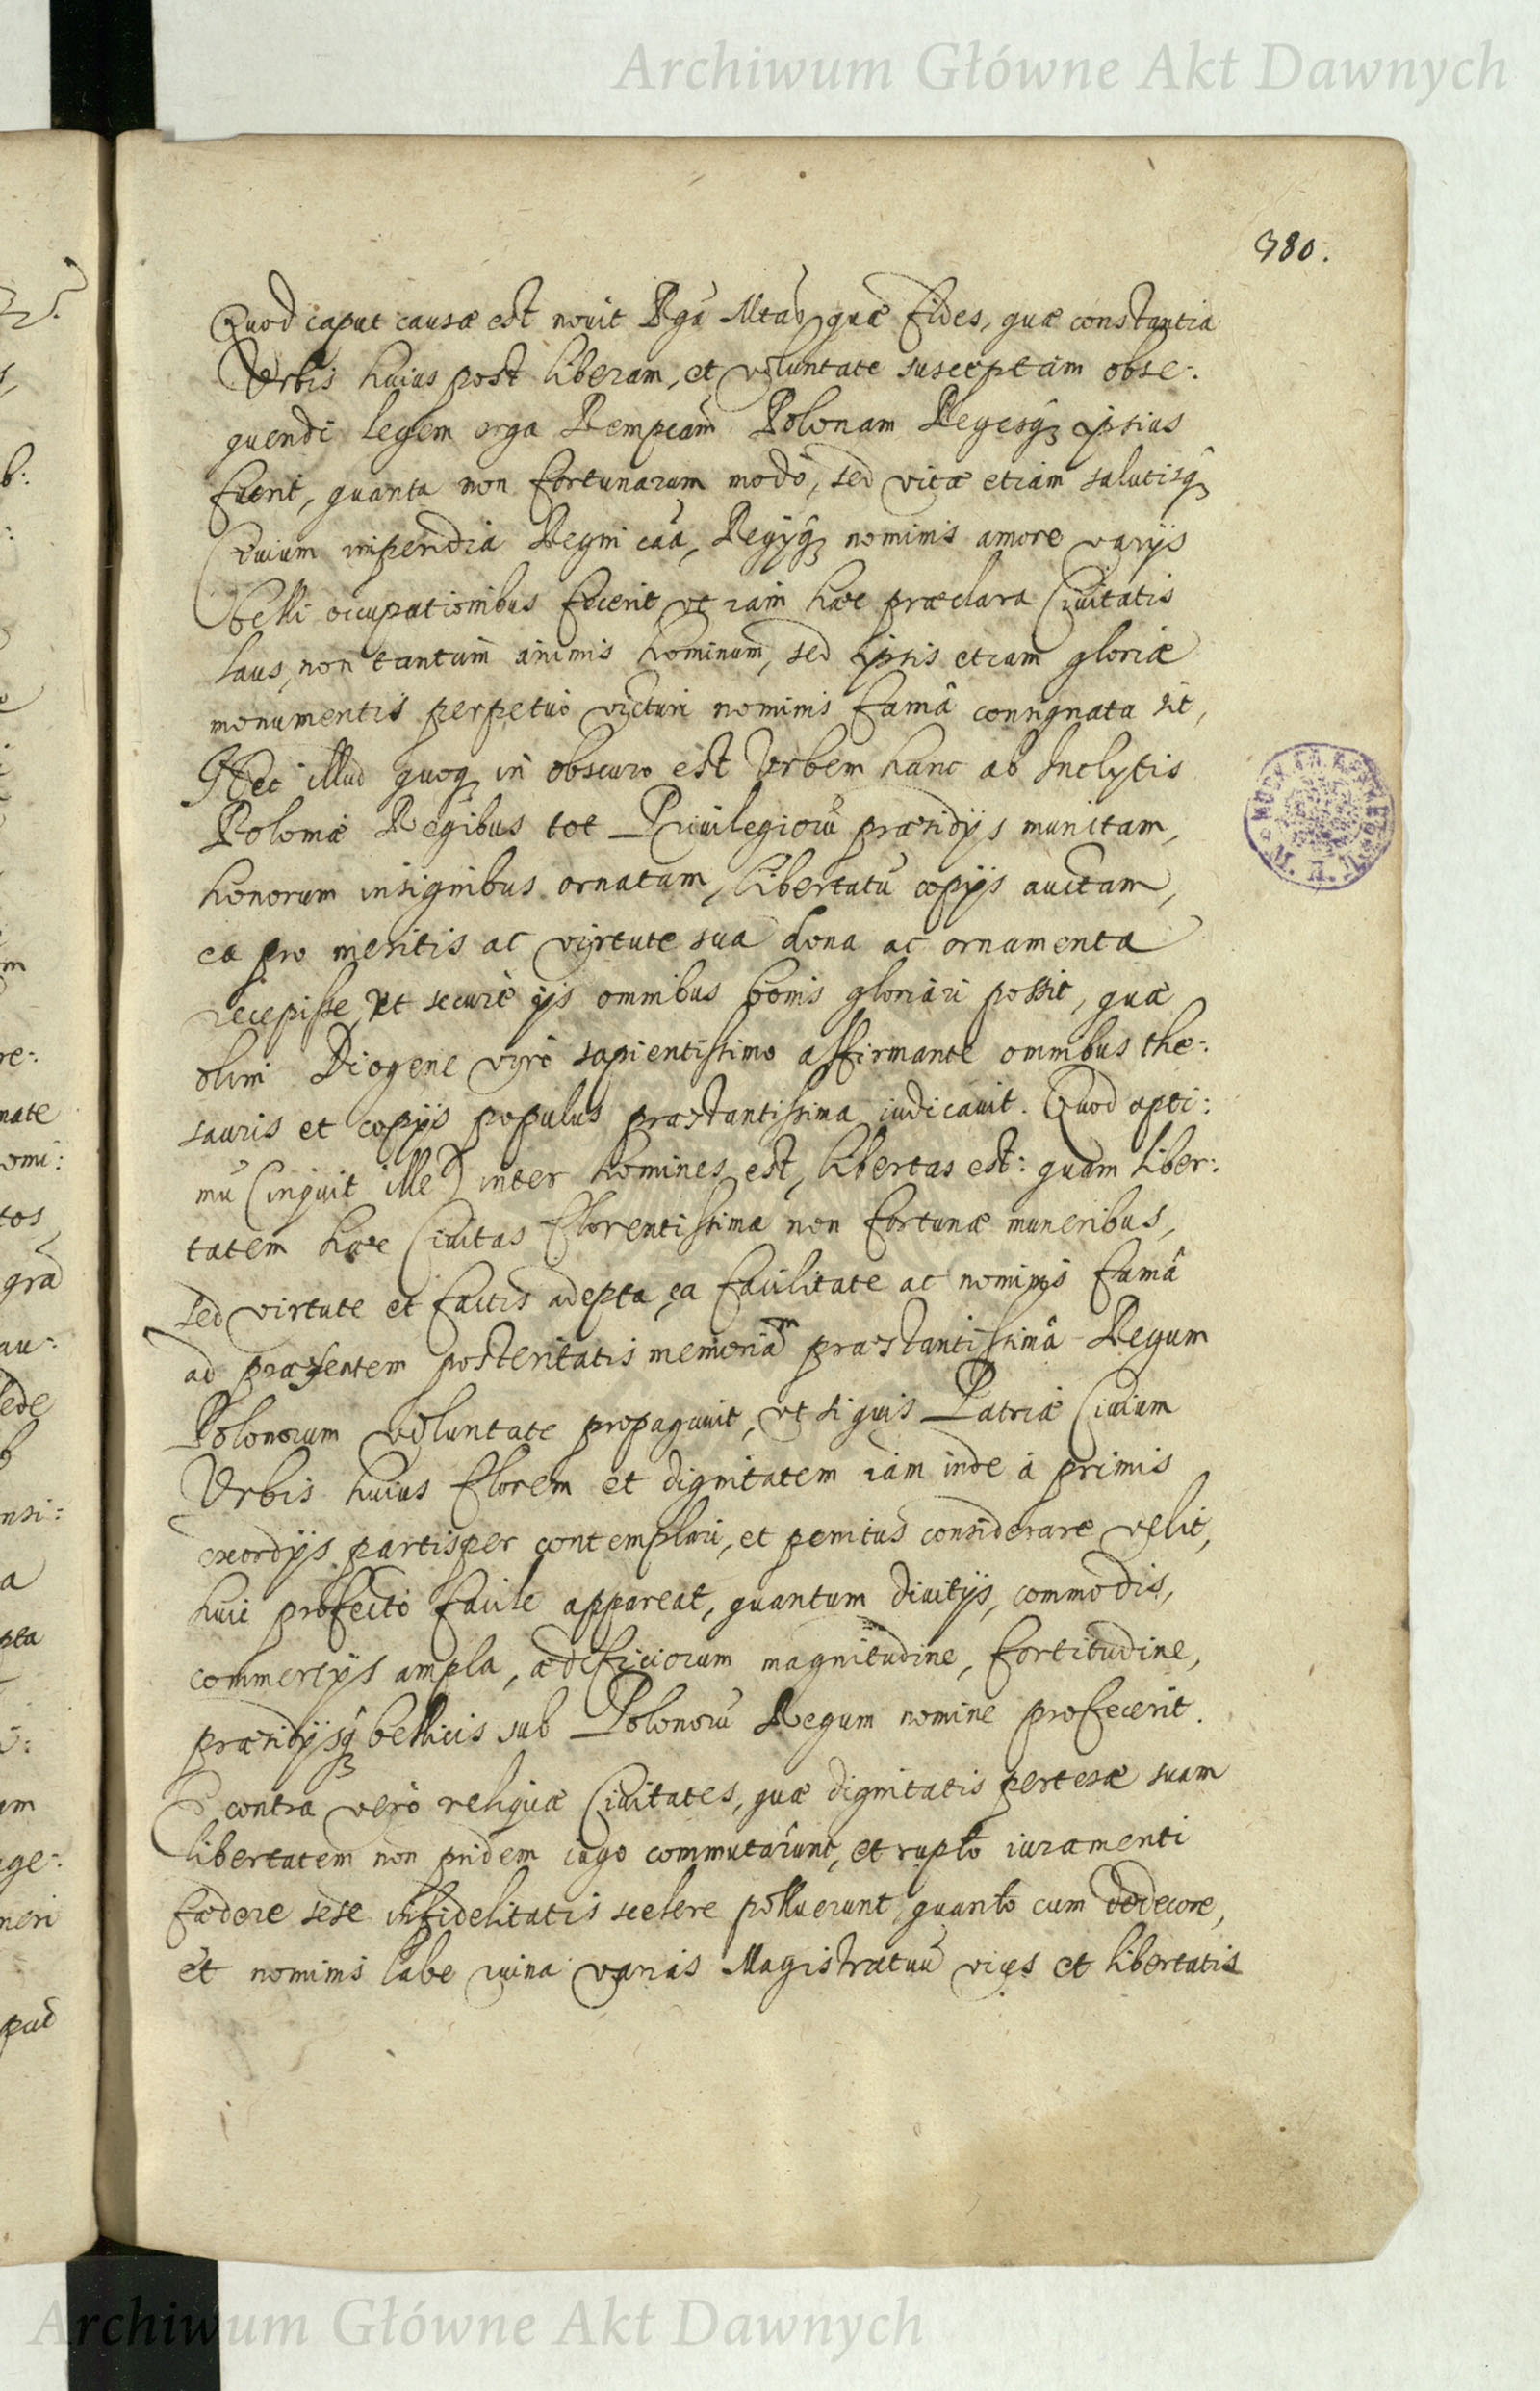 Archiwum Główne Akt Dawnych
380.
Quod caput causæ est novit Rga Mtas quæ fides, quæ constantia
Urbis huius post liberam, et voluntate susceptam obse:
quendi legem erga Rempcam Polonam Regesq; ipsius
fuerit, quanta non fortunarum modò, sed vitæ etiam salutisq;
Civium impendia Regni caa, Regijq; nominis amore varijs
belli occupationibus fecerit, ut iam hæc præclara Civitatis
laus, non tantum animis hominum, sed ipsis etiam gloriæ
monumentis perpetuò victuri nominis famâ consignata sit,
Nec illud quoq; in obscuro est Urbem hanc ab Inclytis
Poloniæ Regibus tot Privilegiorū præsidijs munitam,
honorum insignibus ornatam, libertatū copijs auctam,
ea pro meritis ac virtute sua dona ac ornamenta
recepisse, ut securè ijs omnibus bonis gloriari possit, quæ
olim Diogene viro sapientissimo affirmante omnibus the:
sauris et copijs populus præstantissima iudicavit. Quod opti:
mū (inquit ille) inter homines est, libertas est: quam liber:
tatem hæc Civitas florentissima non fortunæ muneribus,
sed virtute et factis adepta, ea facilitate ac nominis famâ
ad præsentem posteritatis memoriam præstantissimâ Regum
Polonorum voluntate propagavit, ut si quis Patriæ Civium
Urbis huius florem et dignitatem iam inde à primis
exordijs partisper contemplari, et penitus considerare velit,
huic profectò facile appareat, quantum divitijs, commodis,
commercijs ampla, ædificiorum magnitudine, fortitudine,
præsidijsq; bellicis sub Polonorū Regum nomine profecerit.
E contra verò reliquæ Civitates, quæ dignitatis pertesæ suam
libertatem non pridem iugo commutârunt, et rupto iuramenti
fædere sese infidelitatis scelere polluerunt, quanto cum dedecore,
et nominis labe ruina varias Magistratuū vices et libertatis
Archiwum Główne Akt Dawnych